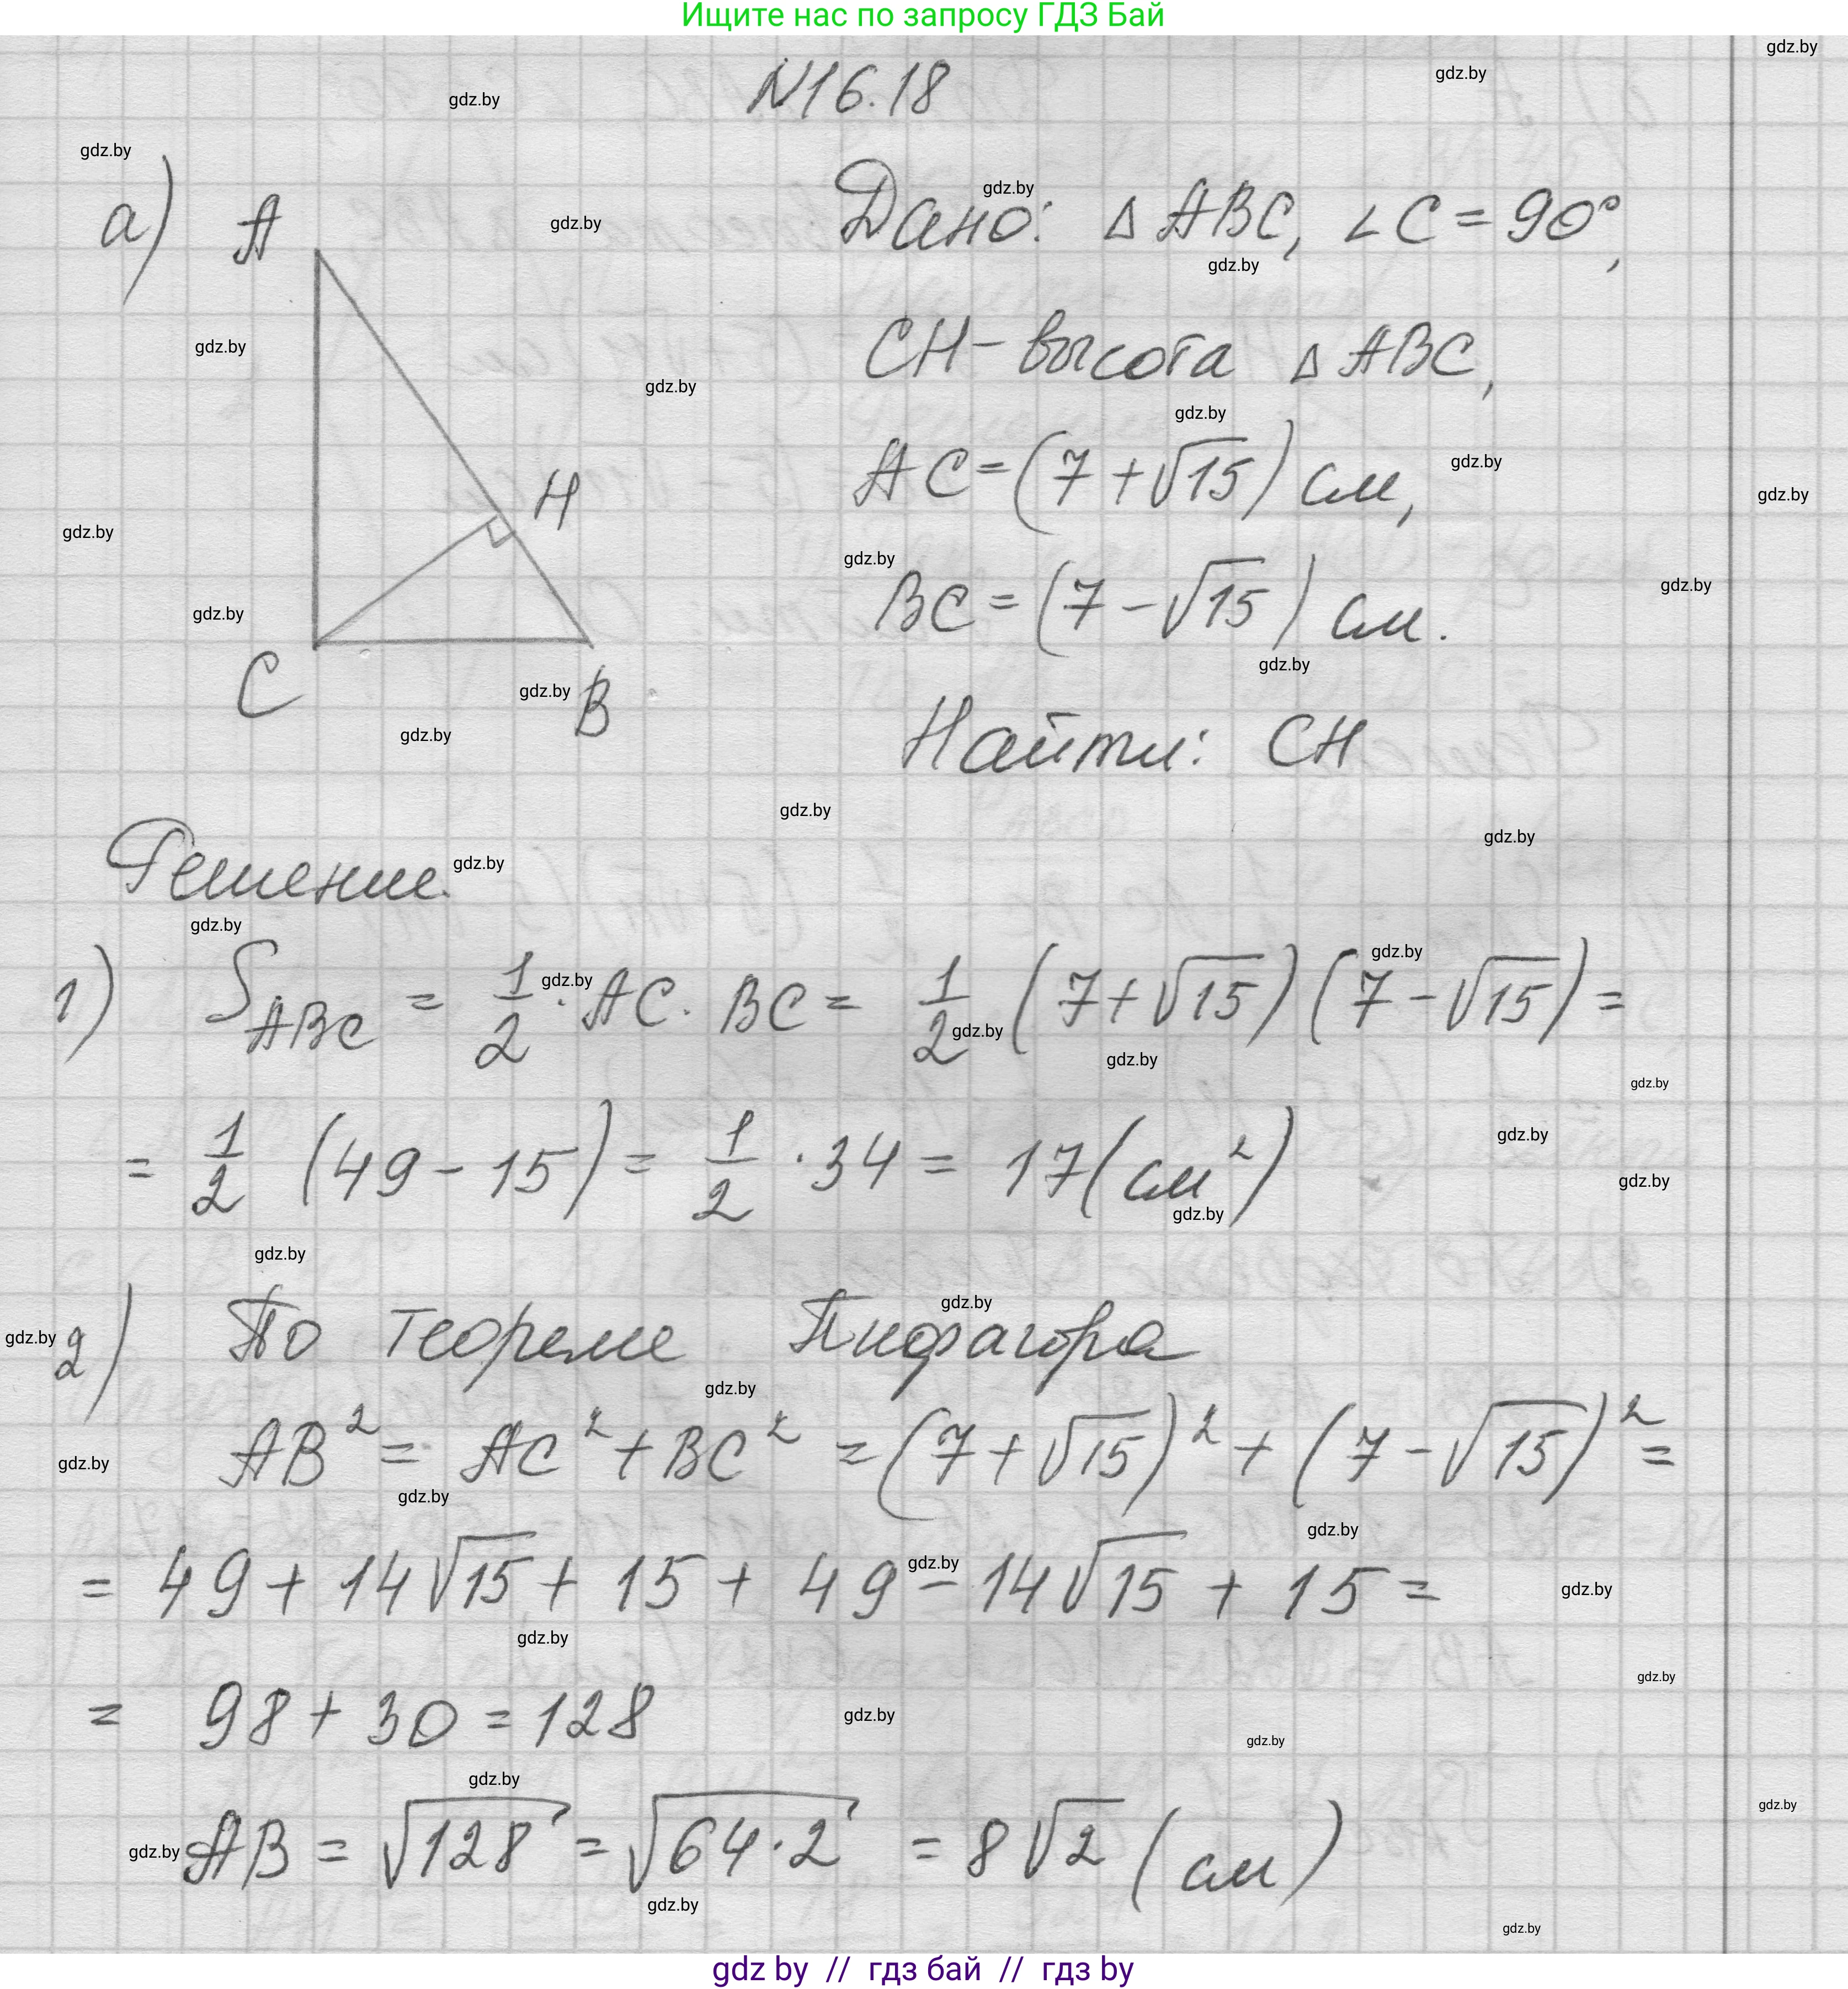 Ищите нас по запросу ГДЗ Бай
N16.18
а)
A
H
C
B
Дано: △ ABC, ∠C = 90°,
CH – высота △ ABC,
AC = (7 + √15) см,
BC = (7 – √15) см.
Найти: CH
Решение.
1) S_ABC = 1/2 · AC · BC = 1/2 (7 + √15)(7 – √15) =
= 1/2 (49 – 15) = 1/2 · 34 = 17 (см²)
2) По теореме Пифагора
AB² = AC² + BC² = (7 + √15)² + (7 – √15)² =
= 49 + 14√15 + 15 + 49 – 14√15 + 15 =
= 98 + 30 = 128
AB = √128 = √64·2 = 8√2 (см)
gdz by // гдз бай // гдз by